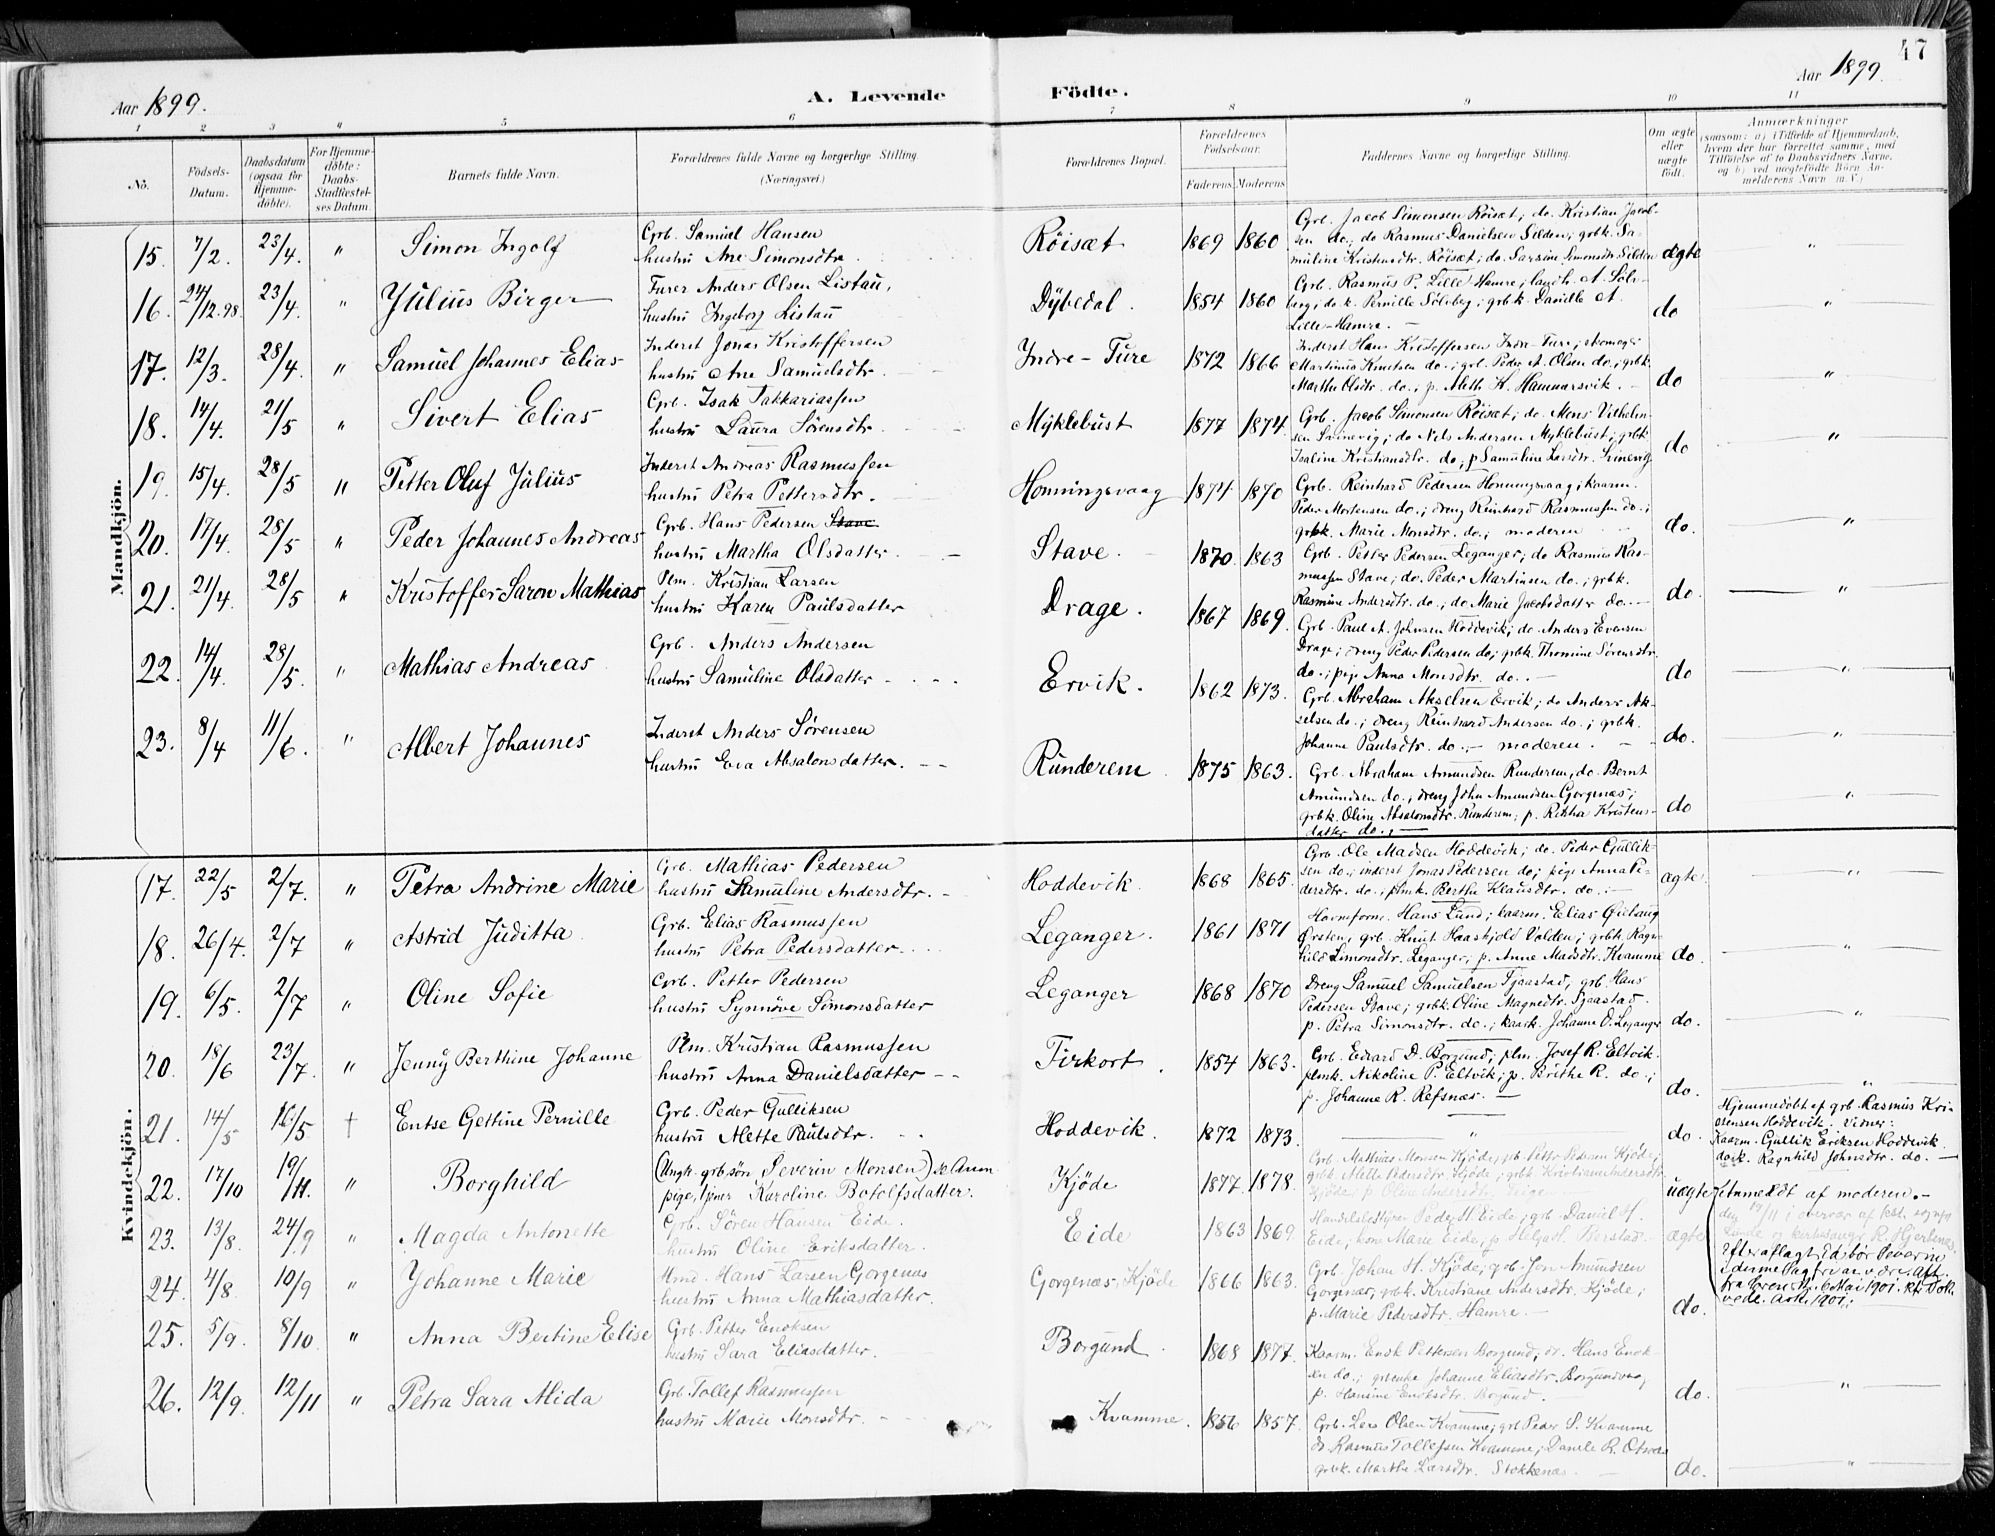 47
Aar 1899.
A. Levende Födte.
Aar 1899.
1 2 3 4 5 6 7 8 9 10 11
No.
Födsels-Datum.
Daabsdatum (ogsaa for Hjemme-döbte).
For Hjemme-döbte: Daabs-Stadfæstel-ses Datum.
Barnets fulde Navn.
Forældrenes fulde Navne og borgerlige Stilling. (Næringsvei.)
Forældrenes Bopæl.
Forældrenes Födselsaar.
Faderens Moderens
Faddernes Navne og borgerlige Stilling.
Om ægte eller uægte födt.
Anmærkninger (saasom: a) i Tilfælde af Hjemmedaab, hvem der har forrettet samme, med Tilföielse af to Daabsvidners Navne, og b) ved uægtefödte Börn An-melderens Navn m. V.)
Mandkjön.
15. 7/2. 23/4. " Simon Ingolf
Grb. Samuel Hansen
hustru Ane Simonsdtr.
Röisæt 1869 1860
Grb. Jacob Simonsen Röisæt; do. Kristian Jacob-
sen do.; do Rasmus Danielsen Silden; grbk. Sa-
muline Kristensdtr. Röisæt; do. Simonsdtr. Silden
ægte "
16. 24/12.98. 23/4. " Julius Birger
Furer Anders Olsen Listau,
hustru Ingeborg Listau
Dybedal. 1854 1860
Grb. Rasmus P. Lille-Hamre; A. Söl-
berg; do. k. Pernille Sölberg; grbk. A.
Lille-Hamre. —
do "
17. 12/3. 28/4. " Samuel Johannes Elias
Inderst Jonas Kristoffersen
hustru Ane Samuelsdtr.
Indre-Fure 1872 1866
Inderst Hans Kristoffersen Indre-Fure; skomager
Martinus Knutsen do.; grb. Peder A. Olsen do.; grbk.
Marthe Olsdtr. do.; p. Alette K. Hammarsvik. -
do "
18. 14/4. 21/5 " Sivert Elias
Grb. Isak Sakkariassen
hustru Laura Sörensdtr.
Myklebust 1877 1874.
Grb. Jacob Simonsen Röisæt; do. Mons Vilhelm-
sen ; do Nils Andersen Myklebust; grbk.
Isaline Kristiansdtr. do; p Samuline Larsdtr.
do "
19. 15/4. 28/5 " Petter Oluf Julius
Inderst Andreas Rasmussen
hustru Petra Pettersdtr.
Honningsvaag 1874 1870
Grb. Reinhard Pedersen Honningsvaag; kaarm.
Peder Mortensen do.; dreng Reinhard Rasmussen do.;
grbk. Marie Monsdtr. do.; moderen
do. "
20. 17/4. 28/5 " Peder Johannes Andreas
Grb. Hans Pedersen Stave
hustru Martha Olsdatter.
Stave. 1870 1863
Grb. Petter Pedersen Leganger; do Rasmus Ras-
mussen Stave; do. Peder Martinsen do.; grbk.
Rasmine Andersdtr. do.; do Marie Jacobsdatter do.
do. "
21. 21/4. 28/5 " Kristoffer Saron Mathias
Plm. Kristian Larsen
hustru Karen Paulsdatter
Drage. 1867 1869.
Grb. Paul A. Johnsen Hoddevik; do. Anders Evensen
Drage; dreng Peder Pedersen do; grbk. Thomine Sörensdtr.
do.; pige Anna Monsdtr. do.. —
do "
22. 14/4. 28/5. " Mathias Andreas
Grb. Anders Andersen
hustru Samuline Olsdatter
Ervik. 1862 1873.
Grb. Abraham Akselsen Ervik; do Anders Ak-
selsen do.; dreng Reinhard Andersen do.; grbk.
Johanne Paulsdtr. do.; — moderen.
do. "
23. 8/4 11/6. " Albert Johannes
Inderst Anders Sörensen
hustru Eva Absalonsdatter.
Runderem 1875 1863.
Grb. Abraham Amundsen Runderem; do. Bernt
Amundsen do.; dreng John Amundsen Gorgenæs;
grbk. Oline Absalonsdtr. Runderem; p. Kristens-
datter do.; —
do "
Kvindekjön.
17. 22/5 2/7. " Petra Andrine Marie
Grb. Mathias Pedersen
hustru Samuline Andersdtr.
Hoddevik. 1868 1865.
Grb. Ole Madsen Hoddevik; do. Peder Gullik-
sen do.; inderst Jonas Pedersen do; pige Anna Pe-
dersdtr. do.; plmk. Berthe Klausdtr. do. :-
ægte.
18. 26/4. 2/7 " Astrid Juditta
Grb. Elias Rasmussen
hustru Petra Pedersdatter.
Leganger. 1861 1871
Havneform. Hans Lund; kaarm. Elias
Örsten; grb. Knut Haaskjold Volden; grbk. Ragn-
hild Simonsdtr. Leganger; p. Anne Madsdtr. Kvamme
do. "
19. 6/5. 2/7 " Oline Sofie
Grb. Petter Pedersen
hustru Synnöve Simonsdatter
Leganger 1868 1870
Dreng Samuel Samuelsen Sjaastad; grb. Hans
Pedersen Stave; grbk. Oline Magnedtr. Sjaastad.
p. Petra Simonsdtr. do.; kaark. Johanne O. Leganger
do. "
20. 18/6 23/7. " Jenny Berthine Johanne
Plm. Kristian Rasmussen
hustru Anna Danielsdatter
Tirkort. 1854 1863.
Grb. Edvard D. Borgund; plm. Josef R. Eltvik.
plmk. Nikoline P. Eltvik; p. Brithe R. do.;
p. Johanne R. Refsnæs. —
do. "
21. 14/5 16/5 † Entse Gettine Pernille
Grb. Peder Gulliksen
hustru Alette Paulsdtr.
Hoddevik. 1872 1873.
"
do.
Hjemmedöbt af grb. Rasmus Kri-
stensen Hoddevik. Vidner:
Kaarm. Gullik Eriksen Hoddevik.
do. k. Ragnhild Johnsdtr. do. —
22. 17/10 19/11. " Borghild
(Ungk. grb.sön Severin Monsen) se Anm
pige, Karoline Botolfsdatter.
Kjöde 1877 1878.
Grb. Mathias Monsen Kjöde; grb. Petter Pedersen Kjöde;
grbk. Mette Pedersdtr. Kjöde; grbk. Kristiane Andersdtr.
Kjöde; p. Oline Andersdtr.
uægte
Anmeldt af moderen. —
den 19/11 i overvær af
og kirkesanger R. Hjertenæs.
6 Mai 1901.
1901.
23. 13/8. 24/9 " Magda Antonette
Grb. Sören Hansen Eide.
hustru Oline Eriksdatter.
Eide 1863 1869
Handelsbestyrer Peder H. Eide; grb. Daniel H.
Eide; kone Marie Eide; p. Berstad.
ægte
24. 4/8 10/9 " Johanne Marie
Hans Larsen Gorgenæs
hustru Anna Mathiasdatter.
Gorgenæs, Kjöde 1866 1863.
Grb. Johan H. Kjöde; grb. Jon Amundsen
Gorgenæs; grbk. Kristiane Andersdtr. Kjöde;
p. Marie Pedersdtr. Hamre. —
do.
25. 5/9. 8/10 " Anna Bertine Elise
Grb. Petter Enoksen
hustru Sara Eliasdatter.
Borgund. 1868 1877.
Kaarm. Enok Pettersen Borgund; do. Hans Enok-
sen do.; Johanne Eliasdtr. Borgundvaag
p. Hansine Enoksdtr. Borgund.
do. "
26. 12/9. 12/11 " Petra Sara Alida
Grb. Tollef Rasmussen
hustru Marie Monsdtr.
Kvamme. 1856 1857.
Grb. Lars Olsen Kvamme; grb. Peder P. Kvamme
do. Rasmus Tollefsen Kvamme;
grbk. Marthe Larsdtr. Stokkenæs. —
do. "